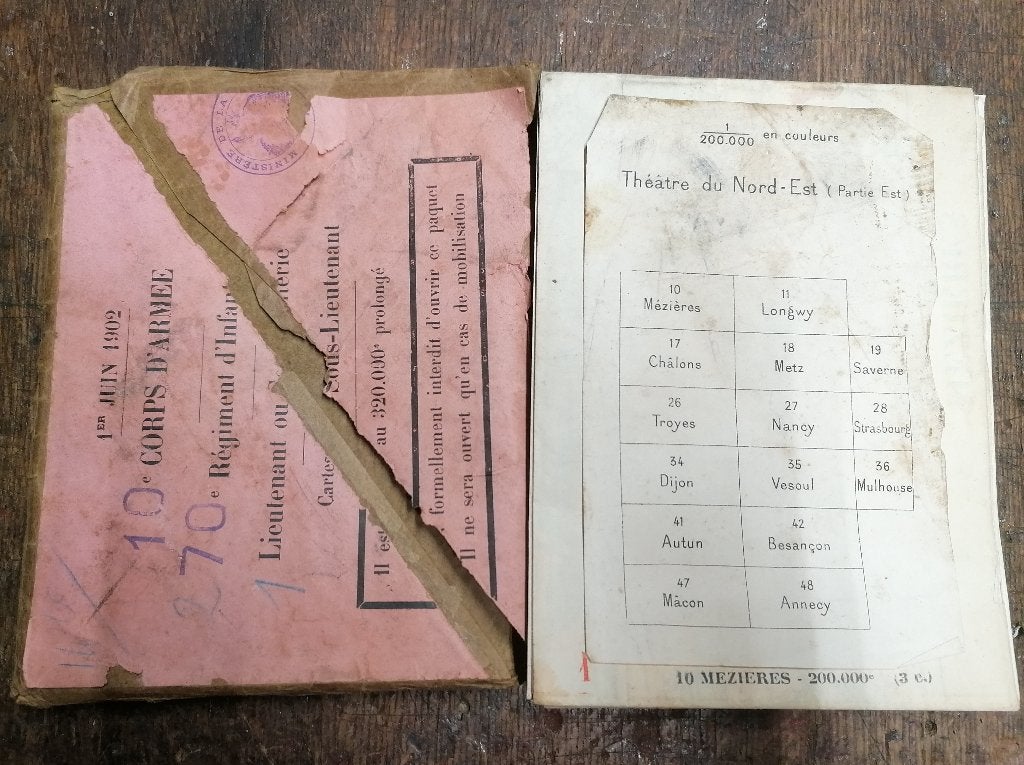 MINISTÈRE DE LA
1ER JUIN 1902
10e CORPS D'ARMÉE
270e Régiment d'Infan
Lieutenant ou Sous-Lieutenant
Cartes au 320.000e prolongé
Il est formellement interdit d'ouvrir ce paquet
Il ne sera ouvert qu'en cas de mobilisation
1
1
200.000 en couleurs
Théâtre du Nord-Est (Partie Est)
10 11
Mézières Longwy
17 18 19
Châlons Metz Saverne
26 27 28
Troyes Nancy Strasbourg
34 35 36
Dijon Vesoul Mulhouse
41 42
Autun Besançon
47 48
Mâcon Annecy
1
10 MEZIERES - 200.000e (3 e.)